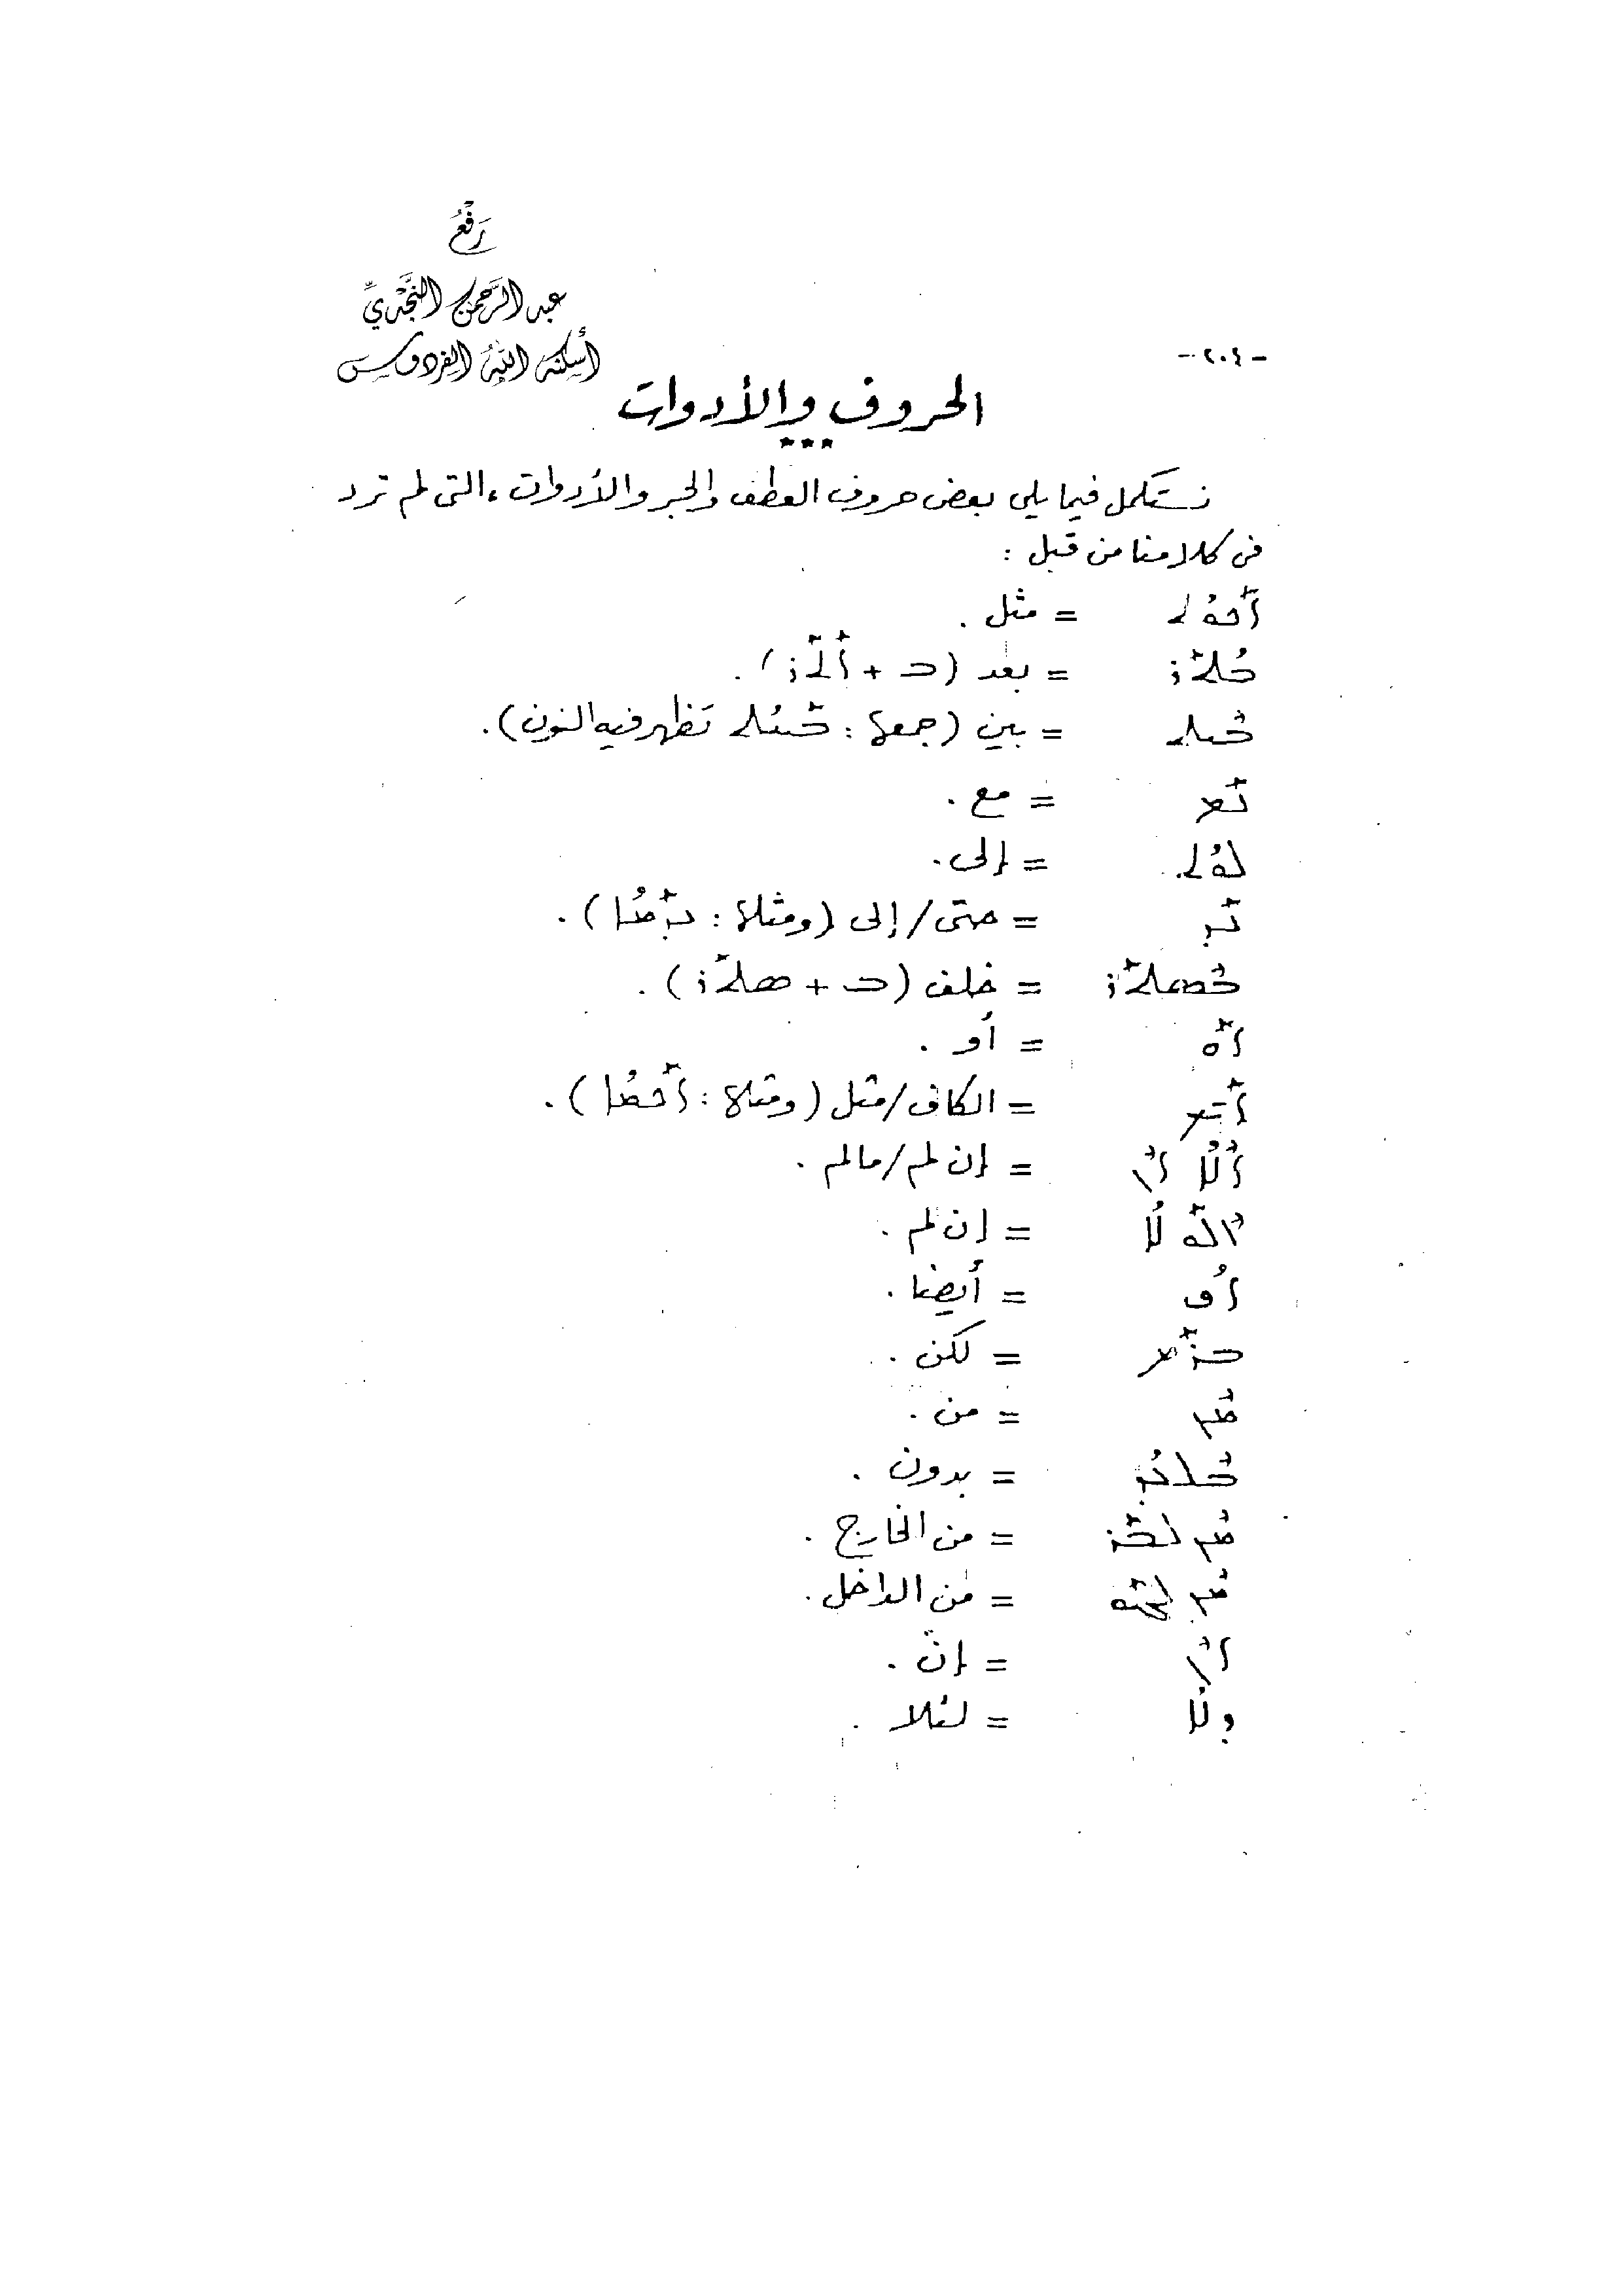 رَفْعُ
عبد الرَّحمن النَّجْديِّ
أسكنه اللهُ الفردوس
- ٢٠٤ -
الحروف والأدوات
***
نستكمل فيما يلى بعض حروف العطف والجر والأدوات، التى لم ترد
فى كلامنا من قبل :
ܐܰܟܘܳܬ = مثل .
ܒܳܬܰܪ = بعد (ܒ + ܐܰܬܰܪ) .
ܒܶܝܬ = بين (جمعها : ܒܰܝܢܳܬ تظهر فيه النون) .
ܥܰܡ = مع .
ܠܘܳܬ = إلى .
ܥܰܕ = حتى/إلى (ومثلها : ܥܕܰܡܳܐ) .
ܒܶܣܬܰܪ = خلف (ܒ + ܣܬܰܪ) .
ܐܰܘ = أو .
ܐܰܝܟ = الكاف/مثل (ومثلها : ܐܰܟܡܳܐ) .
ܐܶܠܳܐ ܐܶܢ = إن لم/مالم .
ܐܶܠܰܘ ܠܳܐ = إن لم .
ܐܳܦ = أيضا .
ܒܪܰܡ = لكن .
ܡܶܢ = من .
ܒܶܠܥܳܕ = بدون .
ܡܶܢ ܠܒܰܪ = من الخارج .
ܡܶܢ ܠܓܰܘ = من الداخل .
ܐܶܢ = إن .
ܕܠܳܐ = لئلا .